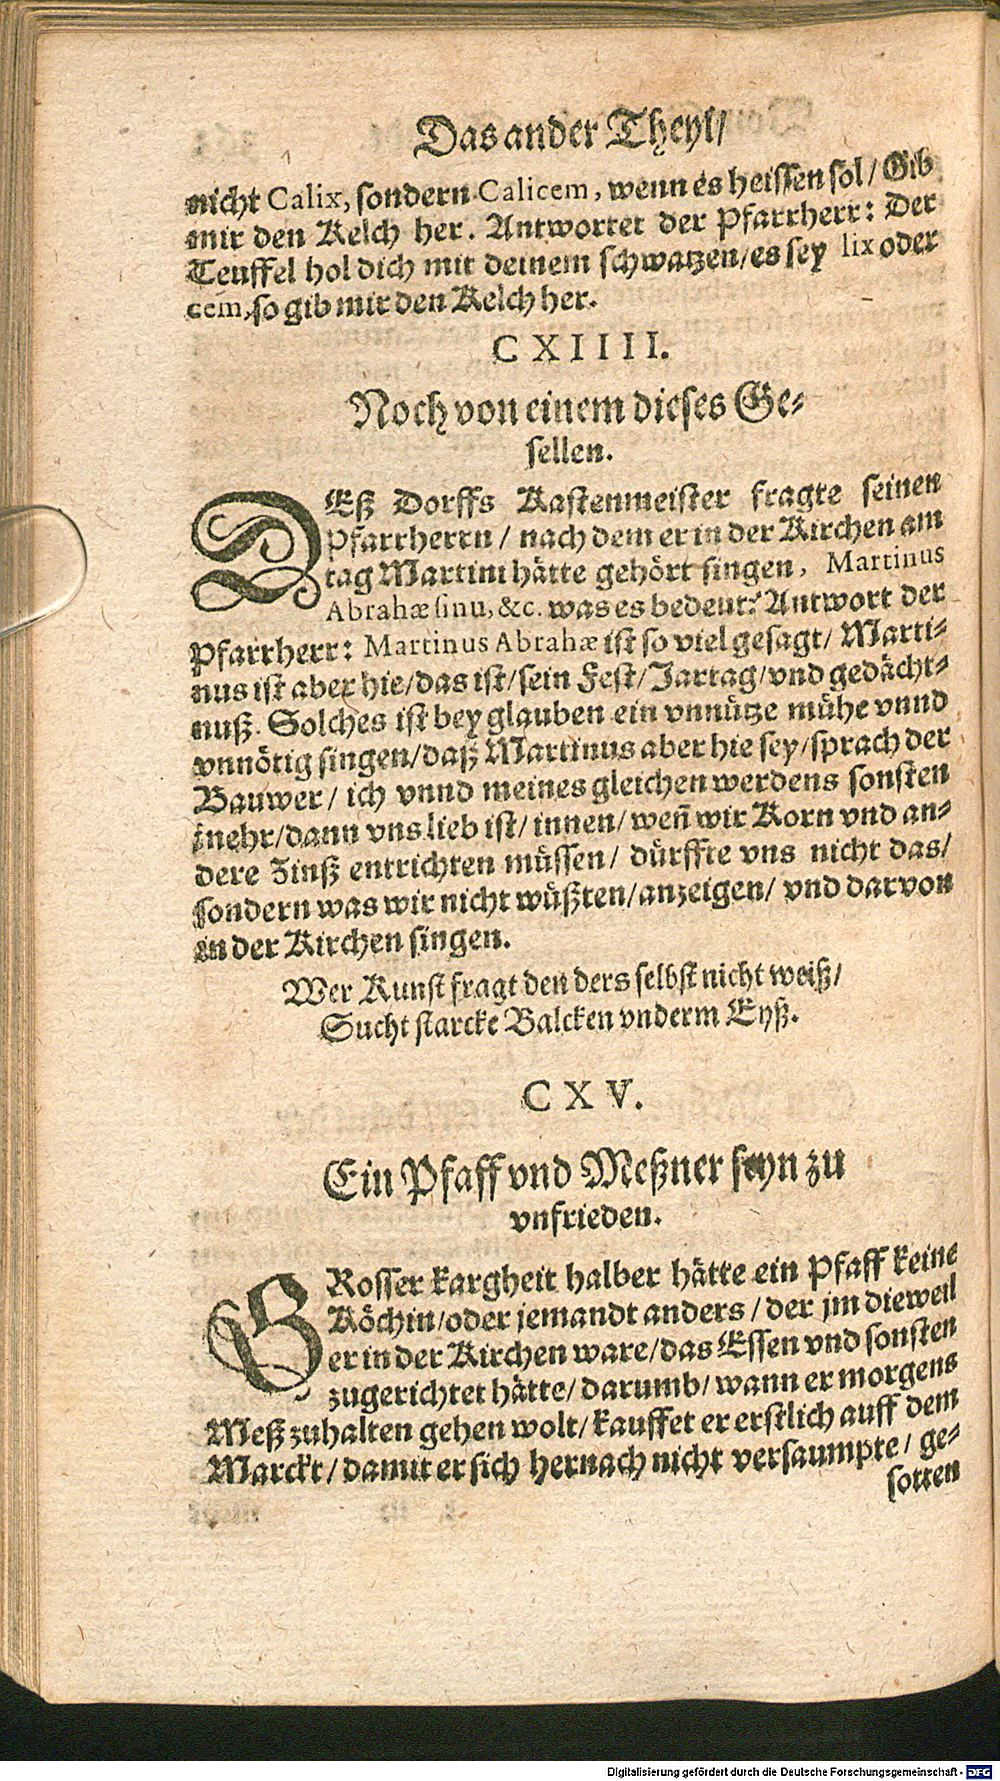 Das ander Theyl/
nicht Calix, sondern Calicem, wenn es heissen sol/ Gib
mir den Kelch her. Antwortet der Pfarrherr: Der
Teuffel hol dich mit deinem schwatzen/ es sey lix oder
cem, so gib mir den Kelch her.
CXIIII.
Noch von einem dieses Ge-
sellen.
DEß Dorffs Kastenmeister fragte seinen
Pfarrherrn/ nach dem er in der Kirchen am
tag Martini hätte gehört singen, Martinus
Abrahæ sinu, &c. was es bedeut? Antwort der
Pfarrherr: Martinus Abrahæ ist so viel gesagt/ Marti-
nus ist aber hie/ das ist/ sein Fest/ Jartag/ vnd gedächt-
nuß. Solches ist bey glauben ein vnnütze mühe vnnd
vnnötig singen/ daß Martinus aber hie sey/ sprach der
Bauwer/ ich vnnd meines gleichen werdens sonsten
mehr/ dann vns lieb ist/ innen/ weñ wir Korn vnd an-
dere Zinß entrichten müssen/ dürffte vns nicht das/
sondern was wir nicht wüßten/ anzeigen/ vnd darvon
in der Kirchen singen.
Wer Kunst fragt den ders selbst nicht weiß/
Sucht starcke Balcken vnderm Eyß.
CXV.
Ein Pfaff vnd Meßner seyn zu
vnfrieden.
GRosser kargheit halber hätte ein Pfaff keine
Köchin/ oder jemandt anders/ der jm dieweil
er in der Kirchen ware/ das Essen vnd sonsten
zugerichtet hätte/ darumb/ wann er morgens
Meß zuhalten gehen wolt/ kauffet er erstlich auff dem
Marckt/ damit er sich hernach nicht versaumpte/ ge-
sotten
Digitalisierung gefördert durch die Deutsche Forschungsgemeinschaft - DFG